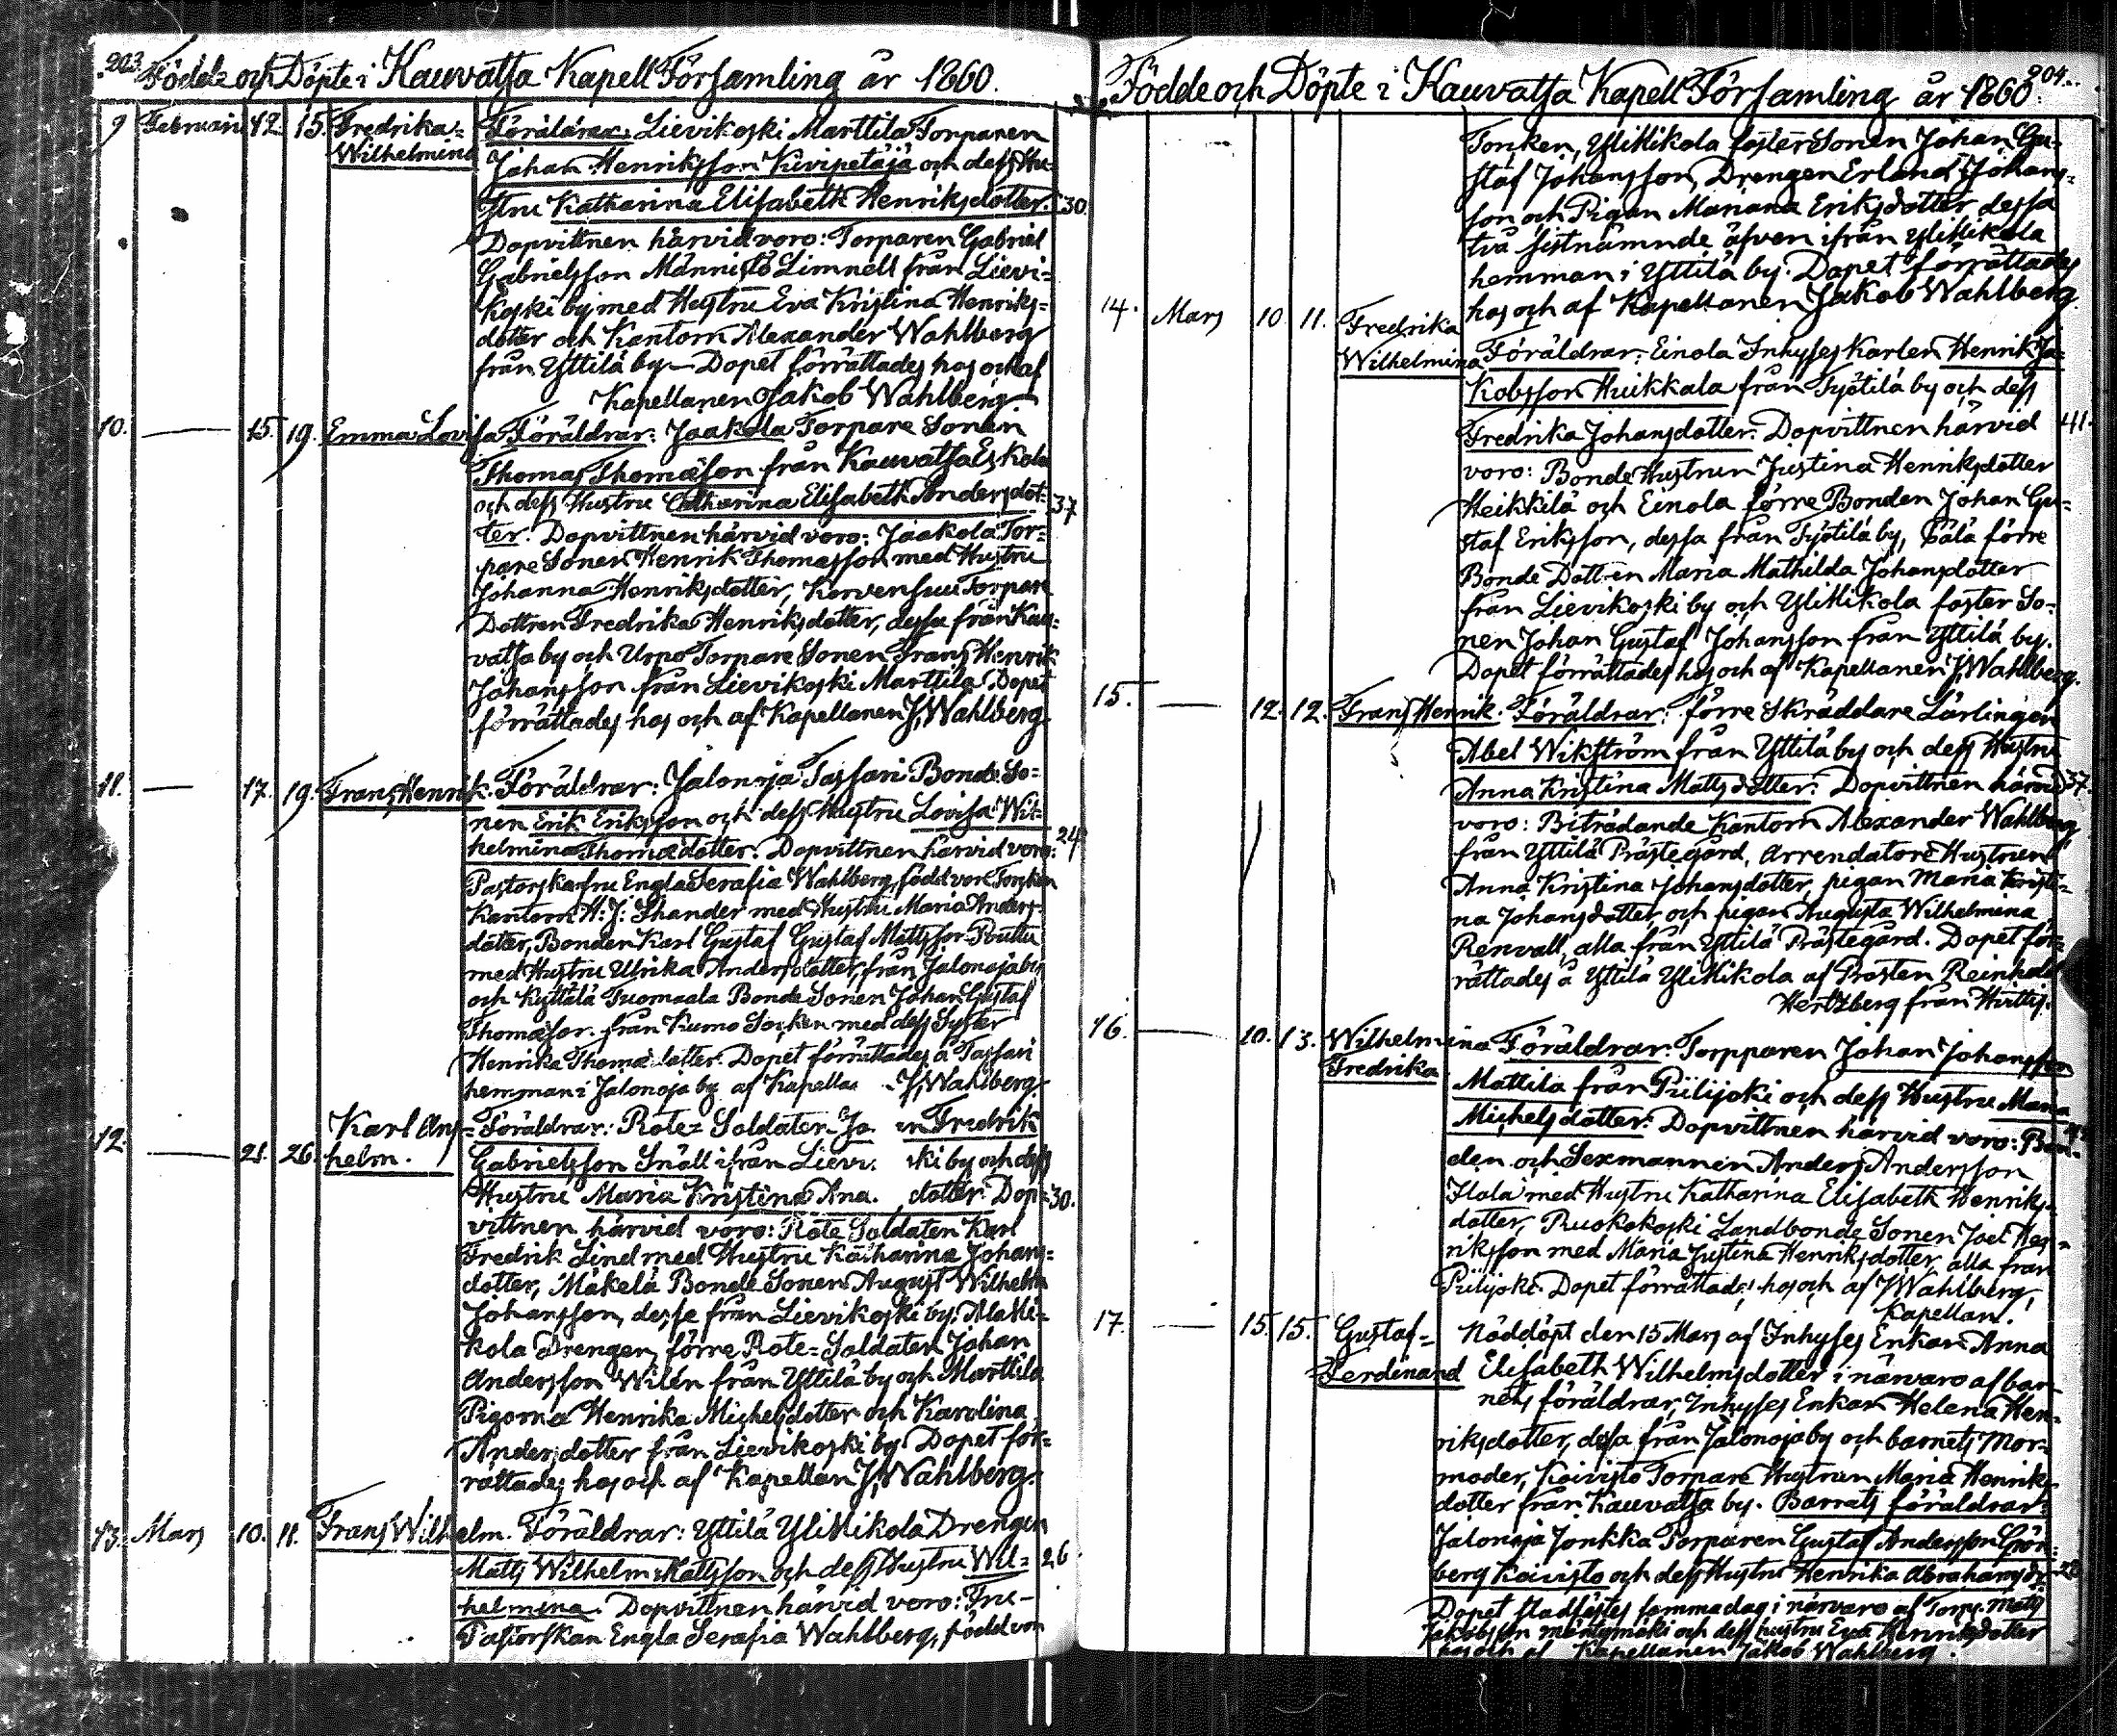 203.
Födde och Döpte i Kauvatsa Kapell Församling år 1860.
9 Februari 12. 15. Fredrika= Föräldrar: Lievikoski Marttila Torparen
Wilhelmina Johan Henriksson Kivipetäjä och dess Hu=
stru Katharina Elisabeth Henriksdotter. 30
Dopvittnen härvid voro: Torparen Gabriel
Gabrielsson Männistö Limnell från Lievi=
koski by med Hustru Eva Kristina Henriks=
dotter och Kantorn Alexander Wahlberg
från Yttilä by – Dopet förrättades hos och af
Kapellanen Jakob Wahlberg
10. — 15. 19. Emma Lovisa Föräldrar: Jaakola Torpare Sonen
Thomas Thomasson från Kauvatsa Eskola
och dess Hustru Catharina Elisabeth Andersdot= 37
ter. Dopvittnen härvid voro: Jaakola Tor=
pare Sonen Henrik Thomasson med Hustru
Johanna Henriksdotter, Korvensuu Torpare
Dottren Fredrika Henriksdotter, dessa från Kau=
vatsa by och Urpo Torpare Sonen Frans Henrik
Johansson från Lievikoski Marttila. Dopet
förrättades hos och af Kapellanen J. Wahlberg.
11. — 17. 19. Frans Henrik. Föräldrar: Jalonoja Tassari Bonde So=
nen Erik Eriksson och dess Hustru Lovisa Wil=
helmina Thomædotter. Dopvittnen härvid voro: 24
Pastorskan fru Engla Serafia Wahlberg, född von Torcken
Kantorn H: J: Shander med Hustru Maria Anders-
dotter, Bonden Karl Gustaf Gustaf Mattsson Pouttu
med Hustru Ulrika Andersdotter, från Jalonoja by
och Kyttälä Tuomaala Bonde Sonen Johan Gustaf
Thomasson från Kumo Socken med dess Syster
Henrika Thomædotter. Dopet förrättades å Tassari
hemman i Jalonoja by af Kapella J. Wahlberg.
12. — 21. 26. Karl Ans= Föräldrar: Rote= Soldaten Jo en Fredrik
helm. Gabrielsson Snäll ifrån Lievi ski by och dess
Hustru Maria Kristina Ana dotter. Dop= 30.
vittnen härvid voro: Rote Soldaten Karl
Fredrik Lind med Hustru Katharina Johans=
dotter, Mäkelä Bonde Sonen August Wilhelm
Johansson, desse från Lievikoski by, AlaNi=
kola Drengen, förre Rote= Soldaten Johan
Andersson Wilén från Yttilä by och Marttila
Pigorna Henrika Michelsdotter och Karolina
Andersdotter från Lievikoski by Dopet för=
rättades hos och af Kapellan J. Wahlberg.
13. Mars 10. 11. Frans Wilhelm. Föräldrar: Yttilä YliNikola Drengen
Matts Wilhelm Mattsson och dess Hustru Wil= 26
helmina. Dopvittnen härvid voro: Fru-
Pastorskan Engla Serafia Wahlberg, född von
204.
Födde och Döpte i Kauvatsa Kapell Församling år 1860.
Torcken, YliNikola foster Sonen Johan Gu=
staf Johansson, Drengen Erland Johans=
son och Pigan Mariana Eriksdotter dessa
två sistnämnde äfven ifrån YliNikola
hemman i Yttilä by. Dopet förrättades
hos och af Kapellanen Jakob Wahlberg.
14. Mars 10. 11. Fredrika
Wilhelmina Föräldrar: Einola Inhyses Karlen Henrik Ja=
kobsson Huikkala från Työtilä by och dess
Fredrika Johansdotter. Dopvittnen härvid 41.
voro: Bonde Hustrun Justina Henriksdotter
Heikkilä och Einola förre Bonden Johan Gu=
staf Eriksson, dessa från Työtilä by, Cälä förre
Bonde Dottren Maria Mathilda Johansdotter
från Lievikoski by och YliNikola foster So=
nen Johan Gustaf Johansson från Yttilä by.
Dopet förrättades hos och af Kapellanen J. Wahlberg.
15. — 12. 12. Frans Henrik. Föräldrar: förre Skräddare Lärlingen
Abel Wikström från Yttilä by och dess Hustru
Anna Kristina Mattsdotter. Dopvittnen härvid 37.
voro: Biträdande Kantorn Alexander Wahlberg
från Yttilä Prästegård, Arrendatore Hustrun
Anna Kristina Johansdotter, pigan Maria Kristi=
na Johansdotter, och pigan Augusta Wilhelmina
Renvall, alla från Yttilä Prästegård. Dopet för=
rättades å Yttilä YliNikola af Prosten Reinhold
Hertzberg från Hvittis.
16. — 10. 13. Wilhelmina Föräldrar: Torpparen Johan Johansson
Fredrika Mattila från Piilijoki och dess Hustru Maria
Michelsdotter. Dopvittnen härvid voro: Bon=
den och Sexmannen Anders Andersson
Ilola med Hustru Katharina Elisabeth Henriks-
dotter, Ruokokoski Landbonde Sonen Joel Hen=
riksson med Maria Justina Henriksdotter, alla från
Piilijoki. Dopet förrättades hos och af J. Wahlberg,
Kapellan.
17. — 15. 15. Gustaf= Nöddöpt den 15 Mars af Inhyses Enkan Anna
Ferdinand Elisabeth Wilhelmsdotter i närvaro af bar=
nets föräldrar, Inhyses Enkan Helena Hen=
riksdotter, dessa från Jalonoja by och barnets Mor=
moder, Koivisto Torpare Hustrun Maria Henriks
dotter från Kauvatsa by. Barnets föräldrar:
Jalonoja Jonkka Torparen Gustaf Andersson Grön=
berg Koivisto och dess Hustru Henrika Abrahamsdr 28
Dopet stadfästes samma dag i närvaro af Torp. Matts
Jakobsson Mäntymäki och dess hustru Eva Henriksdotter
hos och af Kapellanen Jakob Wahlberg.